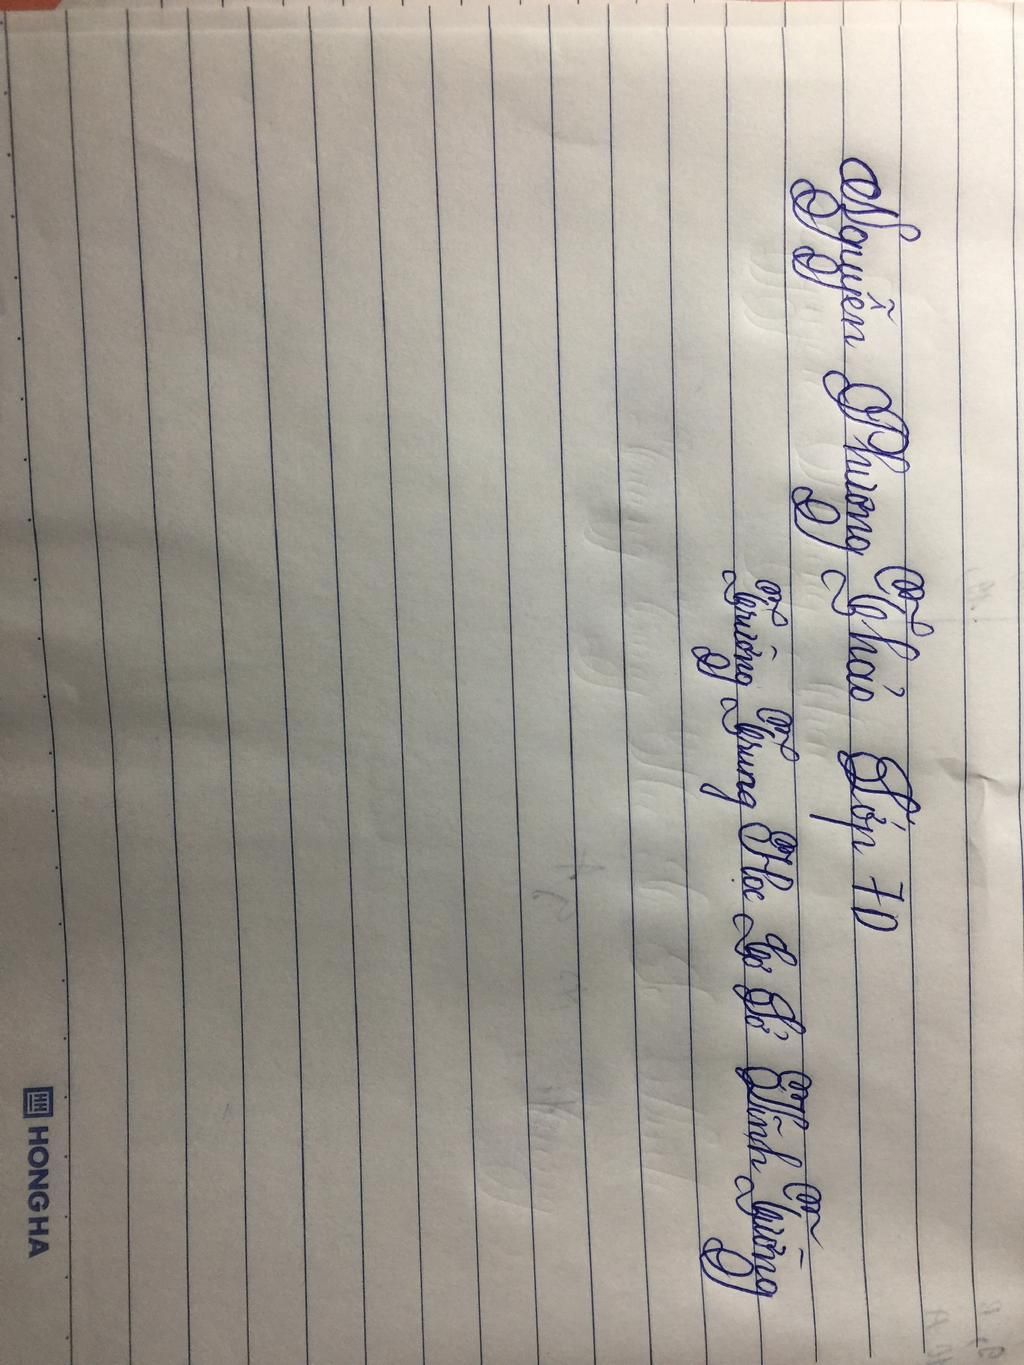 Nguyễn Phương Thảo Lớp 7D
Trường Trung Học Cơ Sở Vĩnh Tường
HONG HA